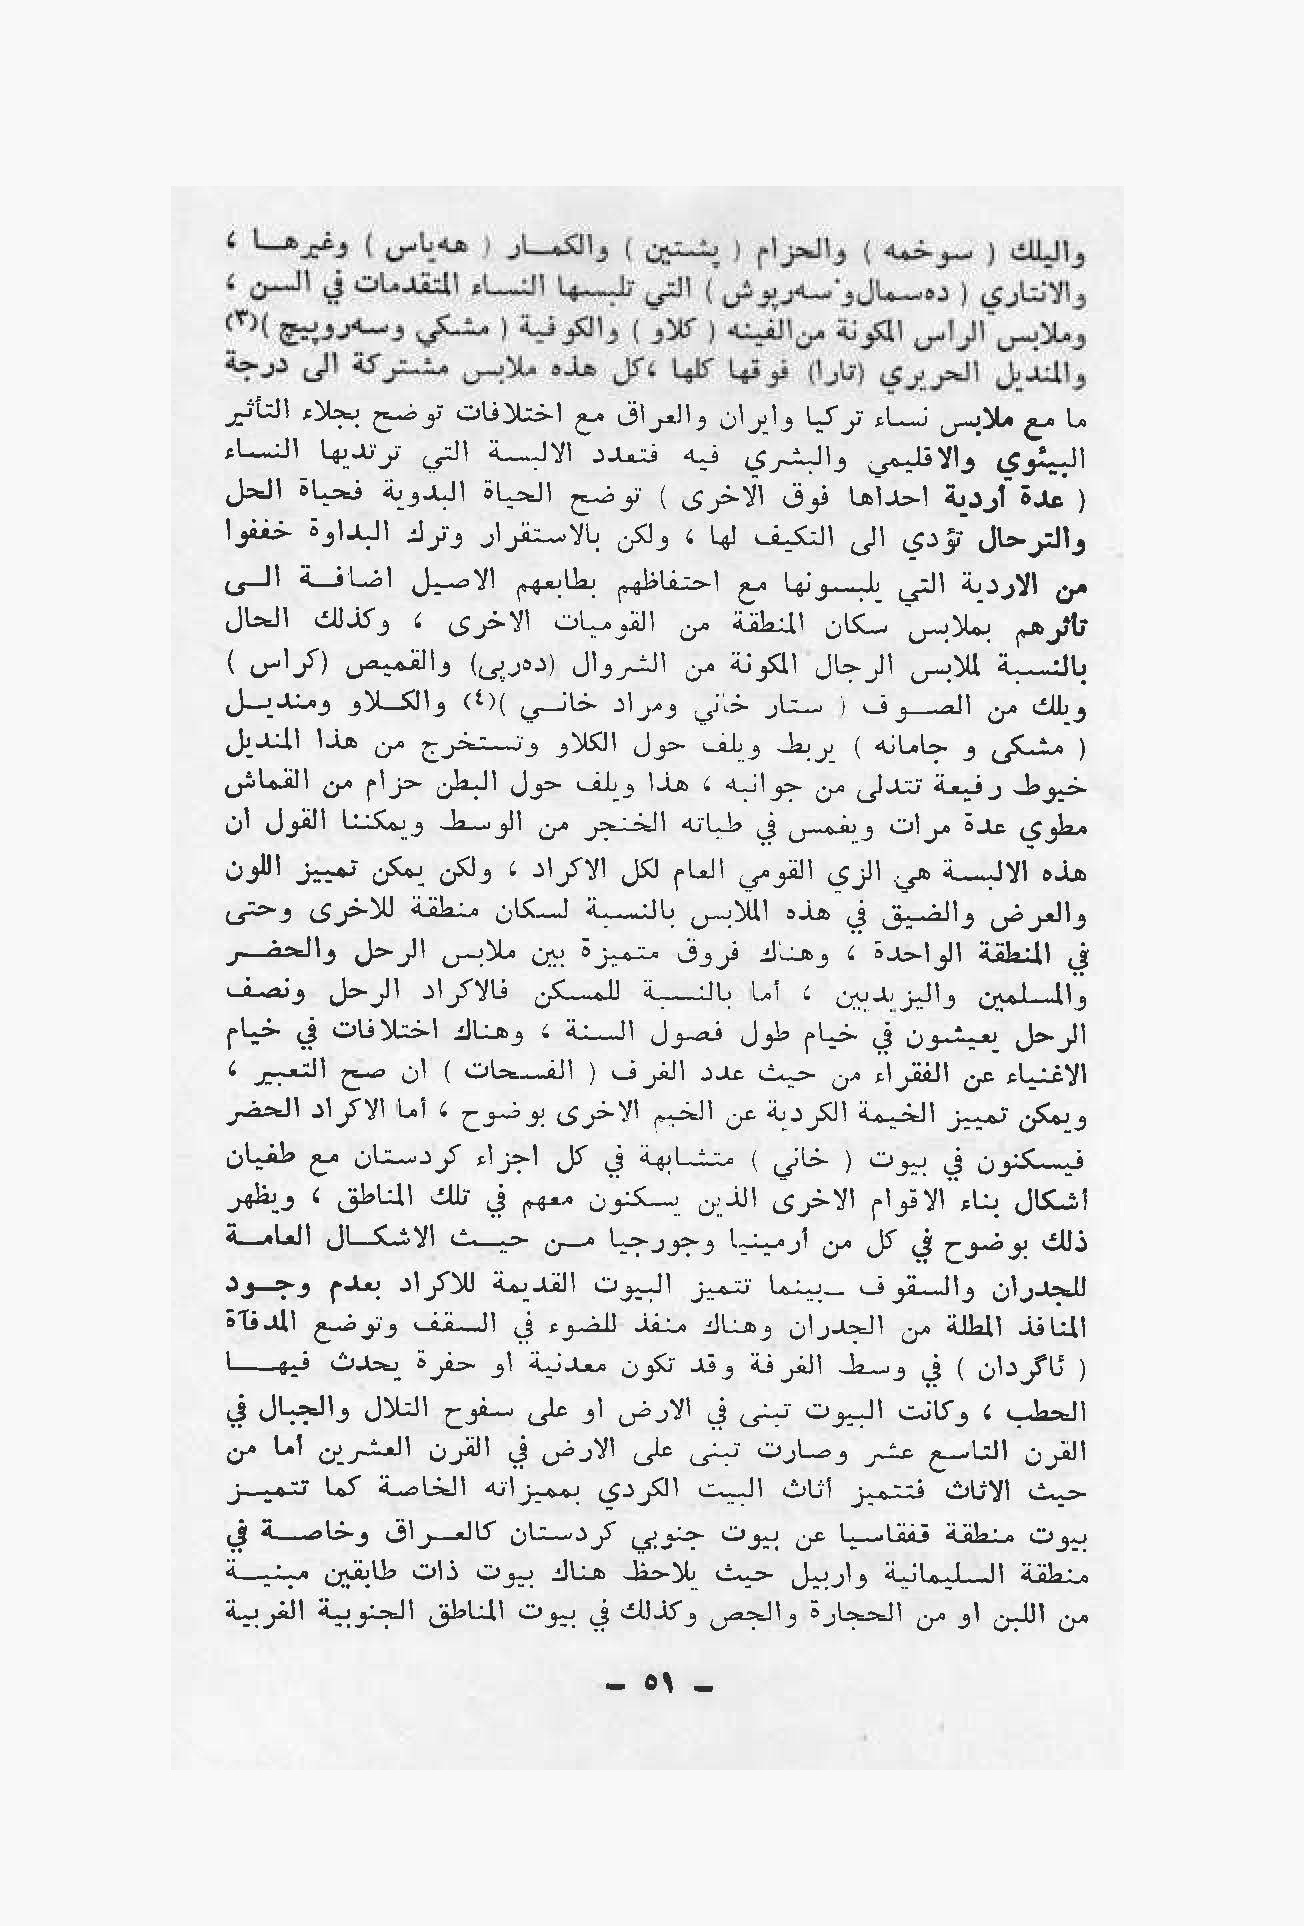 واليلك ( سوخمه ) والحزام ( پشتين ) والكمــار ( هەياس ) وغيرهــا ،
والانتاري ( دەسمال و سەرپوش ) التي تلبسها النساء المتقدمات في السن ،
وملابس الراس المكونة من الفينه ( كلاو ) والكوفية ( مشكي وسەروپيچ )(٣)
والمنديل الحريري (تارا) فوقها كلها ،كل هذه ملابس مشتركة الى درجة
ما مع ملابس نساء تركيا وايران والعراق مع اختلافات توضح بجلاء التأثير
البيئوي والاقليمي والبشري فيه فتعدد الالبسة التي ترتديها النساء
( عدة أردية احداها فوق الاخرى ) توضح الحياة البدوية فحياة الحل
والترحال تؤدي الى التكيف لها ، ولكن بالاستقرار وترك البداوة خففوا
من الاردية التي يلبسونها مع احتفاظهم بطابعهم الاصيل اضافــة الــى
تأثرهم بملابس سكان المنطقة من القوميات الاخرى ، وكذلك الحال
بالنسبة لملابس الرجال المكونة من الشروال (دەرپى) والقميص (كراس )
ويلك من الصــوف ( ستار خاني ومراد خانــي )(٤) والكــلاو ومنديــل
( مشكى و جامانه ) يربط ويلف حول الكلاو وتستخرج من هذا المنديل
خيوط رفيعة تتدلى من جوانبه ، هذا ويلف حول البطن حزام من القماش
مطوي عدة مرات ويغمس في طياته الخنجر من الوسط ويمكننا القول أن
هذه الالبسة هي الزي القومي العام لكل الاكراد ، ولكن يمكن تمييز اللون
والعرض والضيق في هذه الملابس بالنسبة لسكان منطقة للاخرى وحتى
في المنطقة الواحدة ، وهناك فروق متميزة بين ملابس الرحل والحضــر
والمسلمين واليزيديين ، أما بالنسبة للمسكن فالاكراد الرحل ونصف
الرحل يعيشون في خيام طول فصول السنة ، وهناك اختلافات في خيام
الاغنياء عن الفقراء من حيث عدد الغرف ( الفسحات ) ان صح التعبير ،
ويمكن تمييز الخيمة الكردية عن الخيم الاخرى بوضوح ، أما الاكراد الحضر
فيسكنون في بيوت ( خاني ) متشابهة في كل اجزاء كردستان مع طغيان
أشكال بناء الاقوام الاخرى الذين يسكنون معهم في تلك المناطق ، ويظهر
ذلك بوضوح في كل من أرمينيا وجورجيا مــن حيــث الاشكــال العامــة
للجدران والسقوف ــ بينما تتميز البيوت القديمة للاكراد بعدم وجــود
المنافذ المطلة من الجدران وهناك منفذ للضوء في السقف وتوضع المدفآة
( ئاگردان ) في وسط الغرفة وقد تكون معدنية او حفرة يحدث فيهــا
الحطب ، وكانت البيوت تبنى في الارض او على سفوح التلال والجبال في
القرن التاسع عشر وصارت تبنى على الارض في القرن العشرين أما من
حيث الاثاث فتتميز أثاث البيت الكردي بمميزاته الخاصة كما تتميــز
بيوت منطقة قفقاسيا عن بيوت جنوبي كردستان كالعــراق وخاصــة في
منطقة السليمانية واربيل حيث يلاحظ هناك بيوت ذات طابقين مبنيــة
من اللبن او من الحجارة والجص وكذلك في بيوت المناطق الجنوبية الغربية
– ٥١ –